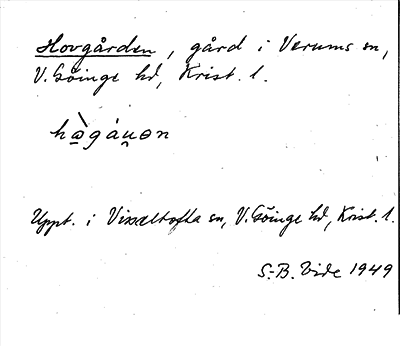 Hovgården, gård i Verums sn,
V. Göinge hd, Krist. l.
hὰgáu̯ɘn
Uppt. i Visseltofta sn, V. Göinge hd, Krist. l.
S.-B. Vide 1949